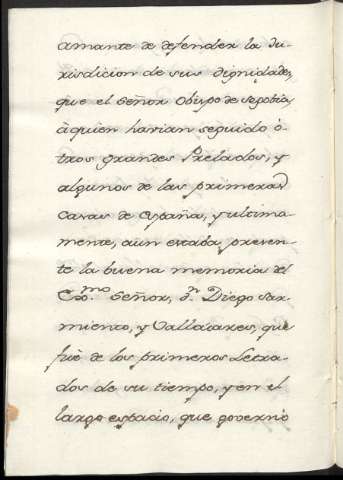 amante de defender la Ju-
risdicion de sus dignidades,
que el Señor Obispo de Segobia,
à quien havian seguido ò-
tros grandes Prelados, y
algunos de las primeras
Casas de España, y ultima-
mente, aùn estaba presen-
te la buena memoria del
Exmo. Señor, Dn. Diego Sar-
miento, y Valladares, que
fuè de los primeros Letra-
dos de su tiempo, y en el
largo espacio, que governò